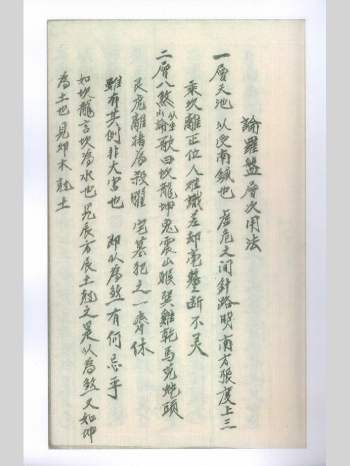 論羅盤層次用法
一層天池 以受南鍼也 虛危之間針路明 南方張度上三
乘 坎離正位人难識 差却毫釐断不灵
二層八煞 以坐山論 歌曰 坎龍坤兎震山猴 巽雞乾馬兌蛇頭
艮虎離猪為殺曜 宅墓犯之一齊休
雖有其例非大害也 即以為煞 有何忌乎
如坎龍言坎為水也 見辰方辰土尅之 是以為煞 又如坤
為土也 見卯木尅土